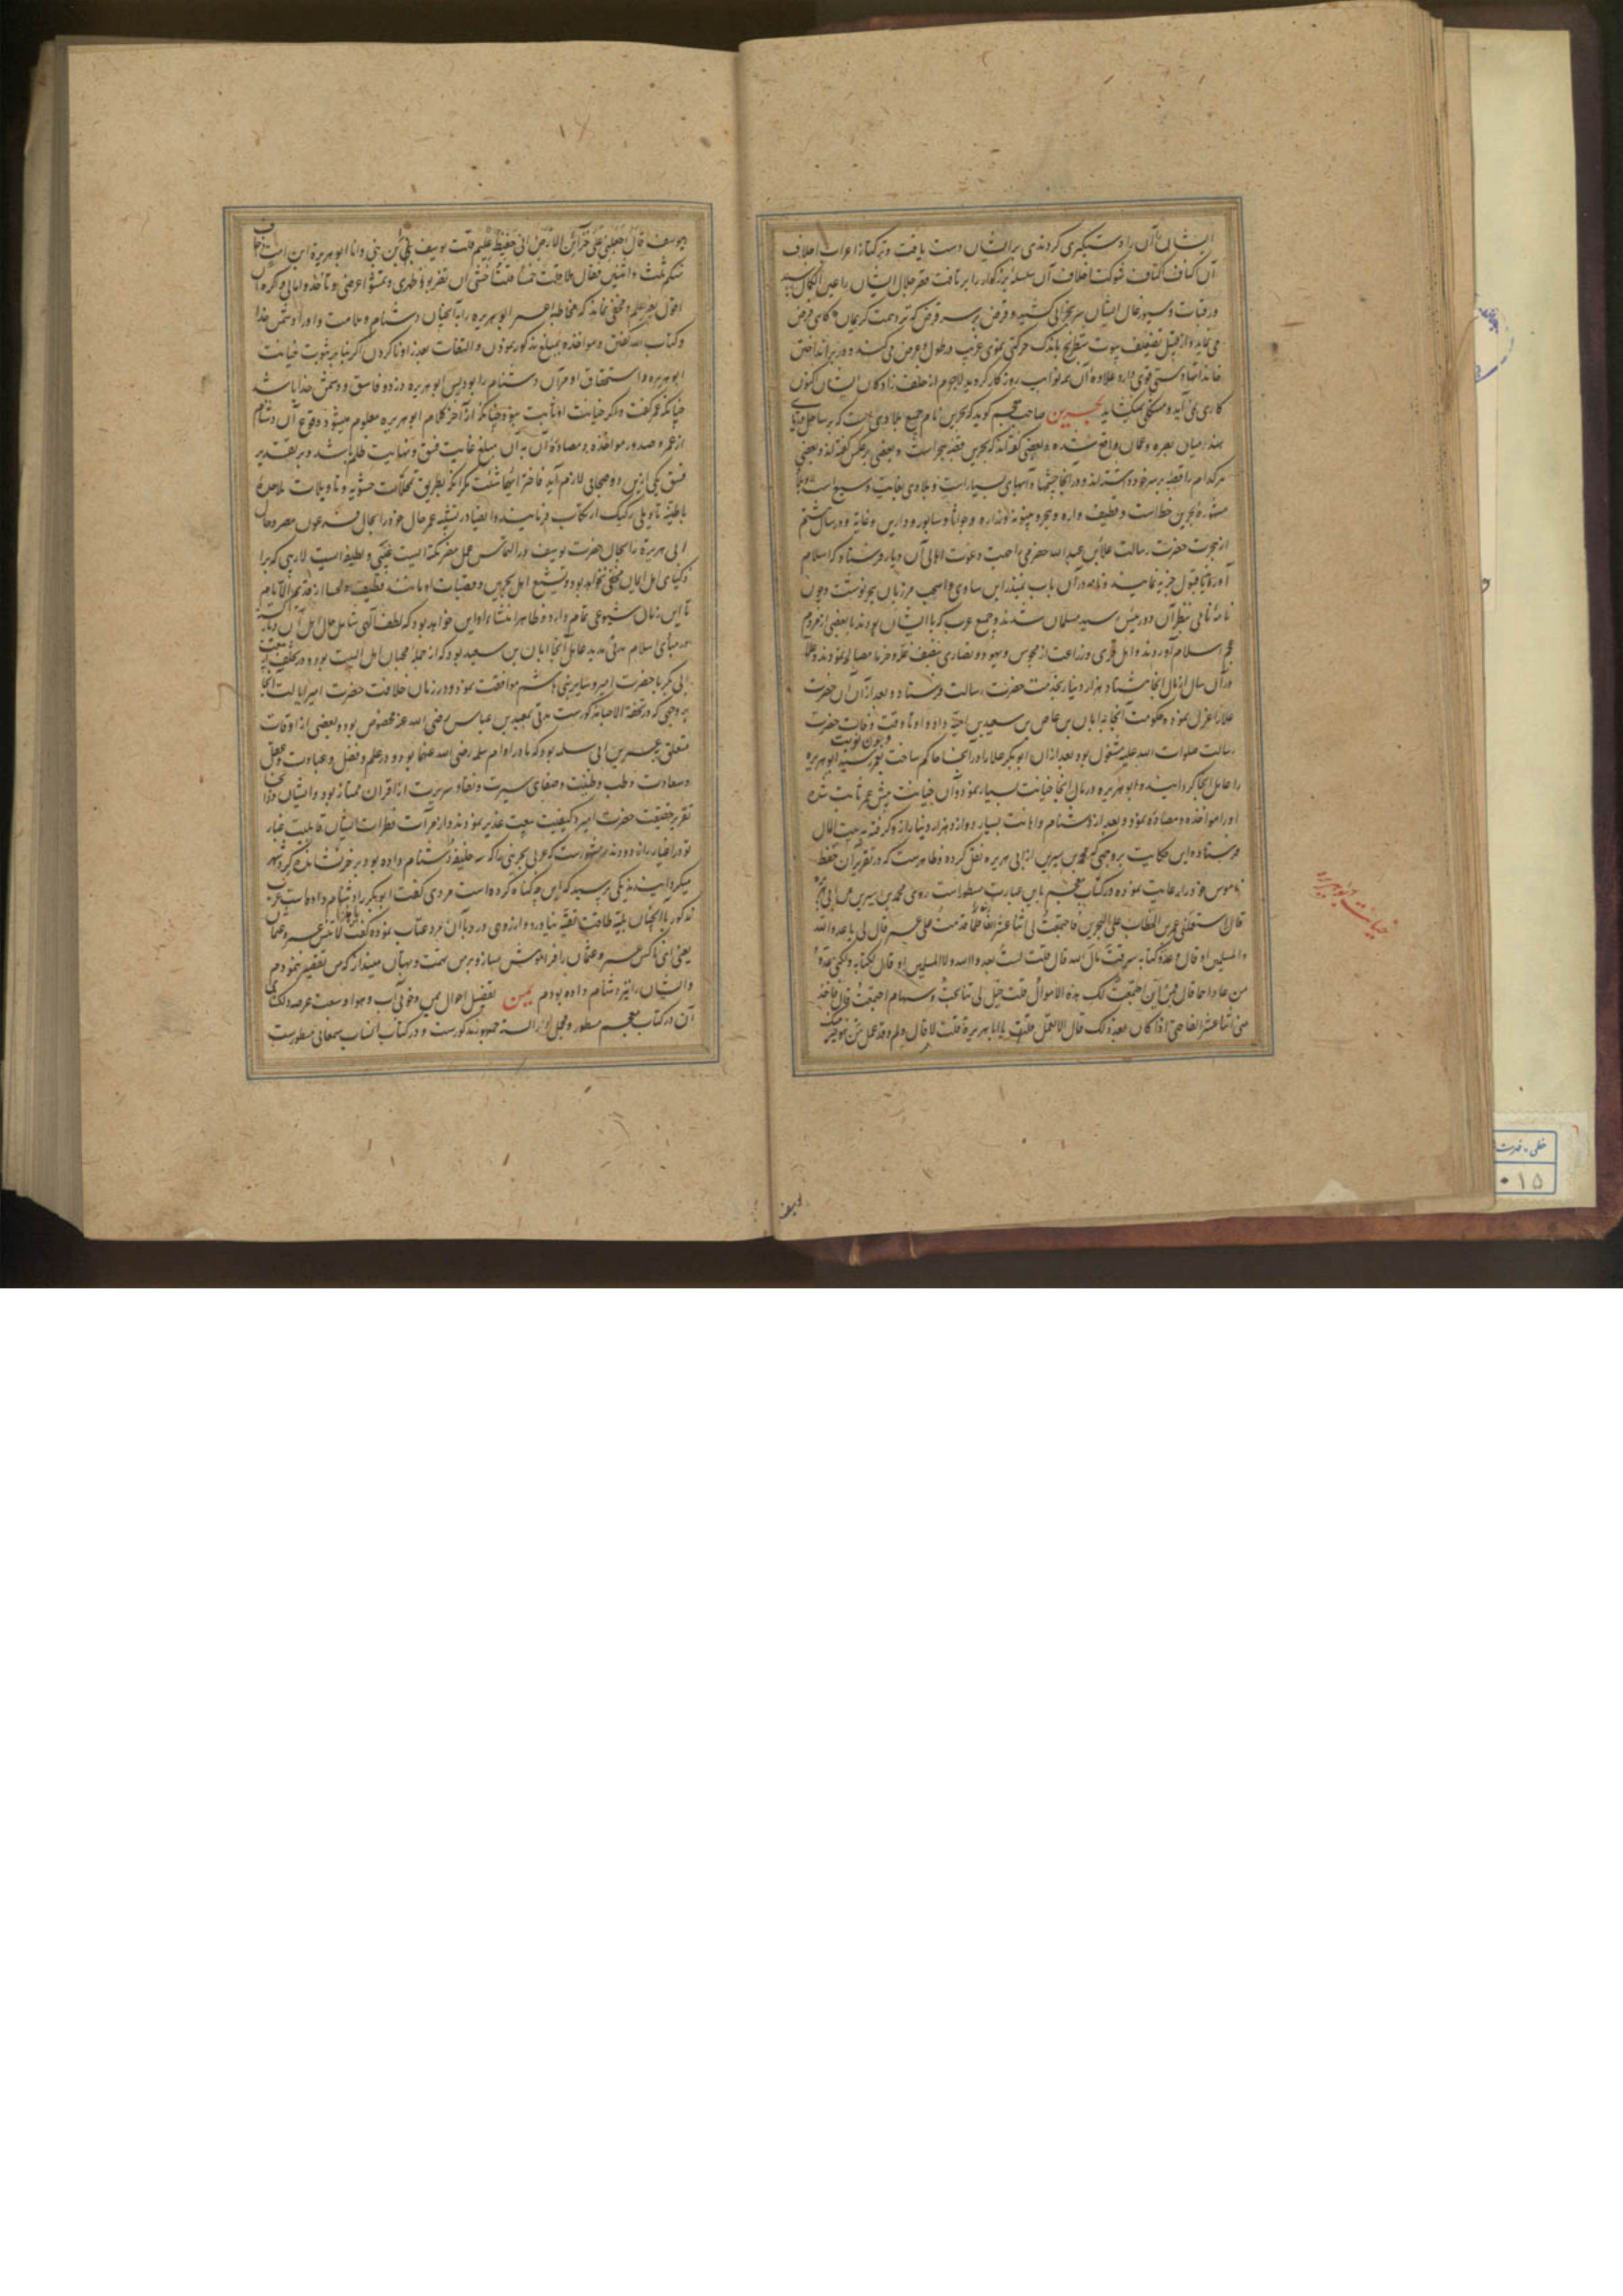 ایشان بآن را دستگیری کردندی بر ایشان دست یافت و ترکتاز اعراب اجلاف
آن اکناف کتاف شوکت اخلاف آن سلسله بزرگوار را برتافت فقر جلال ایشان را عین الکمال رسید
و رقبات و سیورغال ایشان بخرابی کشید و قرض بر سر قرض که نزد همت کریمان کاهی فرض
می نماید و از قبیل تضعیف بیوت شطرنج باندک حرکتی نموی غریب در طول و عرض می کند و در بر انداختن
خاندانها دستی قوی دارد علاوه آن نوایب روزکار کردید لاجرم از خلف زادکان ایشان کنون
کاری نمی آید و مشکلی نمیکشاید بحرین صاحب معجم کوید که بحرین نام جمیع بلادی است که بر ساحل دریای
هند میان بصره و عمان واقع شده و بعضی گفته اند که بحرین قصبه هجر است و بعضی بر عکس گفته اند و بعضی
هر کدام را قصبه بر سر خود دانسته اند و در آنجا چشمها و آبهای بسیار است و بلادی بغایت وسیع است و بلاد
مشهوره بحرین خط است و قطیف و اره و هجر و بینونه و زاره و جواثا و سابور و دارین و غابه و در سال هشتم
از هجرت حضرت رسالت علاء بن عبد الله حضرمی را جهت دعوت اهالی آن دیار فرستاد که اسلام
آورند یا قبول جزیه نمایند و نامه در آن باب بمنذر ابن ساوی و اسیبخت مرزبان هجر نوشت و چون
نامه نامی بنظر آن دو رئیس رسید مسلمان شدند و جمیع عرب که با ایشان بودند با بعضی از مردم
عجم اسلام آوردند و اهل قری و زراعت از مجوس و یهود و نصاری بنصف غله و خرما مصالحه نمودند و علا
در آن سال از مال آنجا هشتاد هزار دینار بخدمت حضرت رسالت فرستاد و بعد از آن آن حضرت
علا را عزل نموده حکومت آنجا به ابان بن عاص بن سعید بن احیه داد و او تا وقت وفات حضرت
رسالت صلوات الله علیه مشغول بود بعد از آن ابوبکر علا را در آنجا حاکم ساخت و چون نوبت بعمر رسید ابو هریره
را عامل آنجا کردانید و ابو هریره در مال آنجا خیانت بسیار نمود و آن خیانت پیش عمر ثابت شده
او را مواخذه و مصادره نمود و بعد از دشنام و اهانت بسیار دوازده هزار دینار از او گرفته به بیت المال
فرستاد و این حکایت بر وجهی که محمد بن سیرین از ابی هریره نقل کرده و ظاهرست که در تقریر آن حفظ
ناموس خود را رعایت نموده در کتاب معجم باین عبارت مسطور است روی محمد بن سیرین عن ابی هریره
قال استعملنی عمر بن الخطاب علی البحرین فاجتمعت لی اثنا عشر الفا فلما قدمت علی عمر قال لی یا عدو الله
و المسلمین او قال و عدو کتابه سرقت مال الله قال قلت لست بعدو الله و لا المسلمین او قال لکتابه و لکنی عدو
من عاداهما قال فمن این اجتمعت لک هذه الاموال قلت خیل لی تناتجت و سهام اجتمعت قال فاخذ
منی اثنا عشر الفا حتی اذا کان بعد ذلک قال الا تعمل قلت لا قال و لم و قد عمل من هو خیر منک
یوسف
خیانت ابو هریره
یوسف قال اجعلنی علی خزائن الارض انی حفیظ علیم قلت یوسف نبی ابن نبی و انا ابو هریرة ابن امیة و اخاف
منکم ثلث و اثنین فقال هلا قلت خمسا قلت اخشی ان تضربوا ظهری و تشتموا عرضی و تأخذوا مالی و اکره ان
اقول بغیر علم و مخفی نماند که مخاطبه عمر ابو هریره را بآنچنان دشنام و ملامت و او را دشمن خدا
و کتاب الله گفتن و مواخذه بمبلغ مذکور نمودن و التفات بعذر او ناکردن اکر بنا بر ثبوت خیانت
ابو هریره و استحقاق او مر آن دشنام را بود پس ابو هریره دزد و فاسق و دشمن خدا باشد
چنانکه عمر گفت و اگر خیانت او ثابت نبود چنانکه از آخر کلام ابو هریره معلوم میشود وقوع آن دشنام
از عمر و صدور مواخذه و مصادره آن به آن مبلغ غایت فسق و نهایت ظلم باشد و بر تقدیر
فسق یکی از این دو صحابی لازم آید فاختر ایهما شئت مگر آنکه بطریق تمحلات حشویه و تاویلات ملاحده
باطنیه تاویلی رکیک ارتکاب فرمایند و ایضا در تشبیه عمر حال خود را بحال فرعون مصر و حال
ابی هریرة را بحال حضرت یوسف در التماس عمل مضر نکته ایست غیبی و لطیفه ایست لاریبی که بر
اذکیای اهل ایمان مخفی نخواهد بود و تشیع اهل بحرین و قصبات او مانند قطیف و لحسا از قدیم الایام
تا این زمان شیوعی تمام دارد و ظاهرا منشاء او این خواهد بود که لطف الهی شامل حال اهل آن دیار
در مبادی اسلام مدتی مدید عامل آنجا ابان بن سعید بود که از جمله محبان اهل البیت بود و در تخلف از بیعت
ابی بکر با حضرت امیر و سایر بنی هاشم موافقت نمود و در زمان خلافت حضرت امیر ایالت آنجا
بر وجهی که در تحفة الاحبا مذکورست مدتی بمعبد بن عباس رضی الله عنه مخصوص بود و بعضی از اوقات
متعلق بعمر بن ابی سلمه بود که مادر او ام سلمه رضی الله عنها بود و در علم و فضل و عبادت و عقل
و سعادت و طیب طینت و صفای سیرت و نقاوه سریرت از اقران ممتاز بود و ایشان در آنجا
تقریر حقیقت حضرت امیر و کیفیت بیعت غدیر نمودند و از مرآت فطرات ایشان قابلیت غبار
تودد اغیار را زدودند مشهورست که عربی بحرینی را که سه خلیفه را دشنام داده بود بر خر نشانده گرد شهر
میگردانیدند یکی پرسید که این چه گناه کرده است مردی گفت ابوبکر را دشنام داده است عرب
مذکور با آنچنان بلیه طاقت تقیه نیاورد و از روی درد با آن مرد عتاب نموده گفت یا هذا لا تنس عمر و عثمان
یعنی ای ناکس عمر و عثمان را فراموش مساز و بر من تهمت و بهتان مینداز که من تقصیر ننمودم
و ایشان را نیز دشنام داده بودم یمن تفصیل احوال یمن و خوبی آب و هوا و وسعت عرصه دلکشای
آن در کتاب معجم مسطور و مجمل او در السنه جمهور مذکورست و در کتاب انساب سمعانی مسطورست
خطی - فهرست
۰۱۵